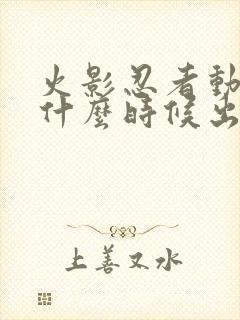 火影忍者動
什麼時候出
上善又水